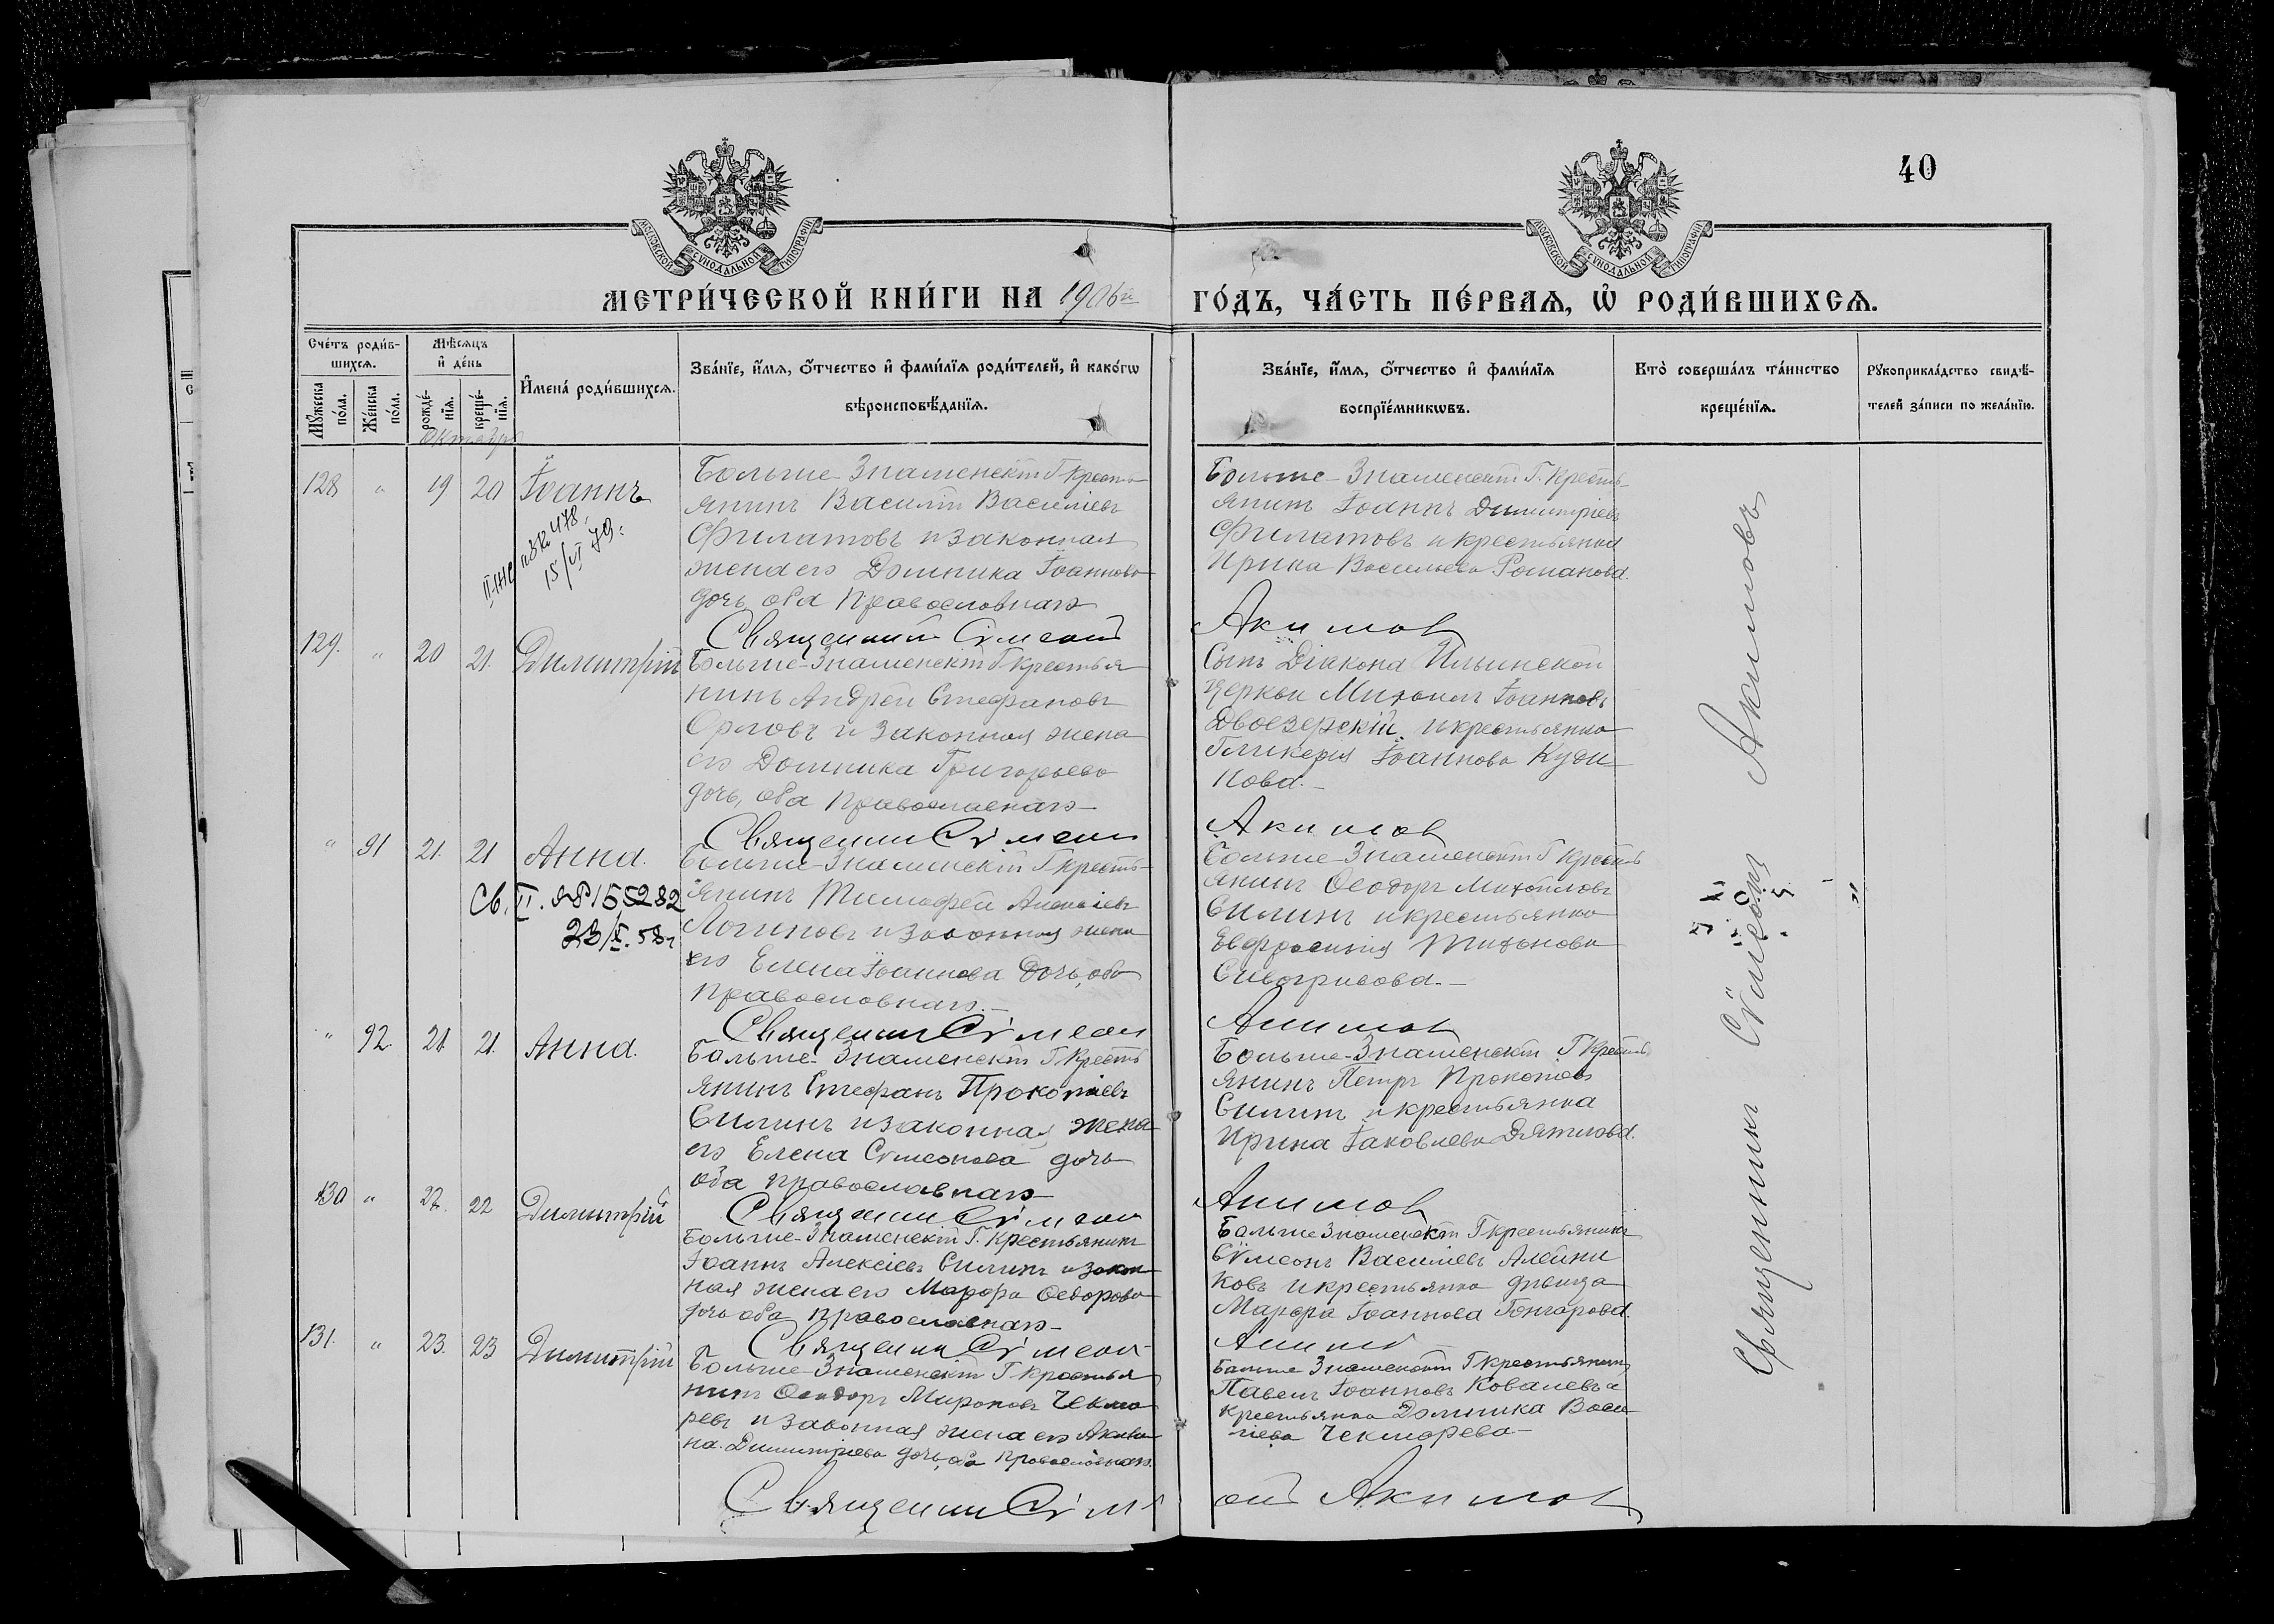 40
МОСКОВСКОЙ СѴНОДАЛЬНОЙ ТИПОГРАФІИ
МОСКОВСКОЙ СѴНОДАЛЬНОЙ ТИПОГРАФІИ
МЕТРИ́ЧЕСКОЙ КНИ́ГИ НА 1906й ГО́ДЪ, ЧА́СТЬ ПЕ́РВАѦ, Ѡ҆ РОДИ́ВШИХСѦ.
Сче́тъ роди́в-
шихсѧ.
Мꙋ́жеска по́ла.
Же́нска по́ла.
Мѣ́сѧцъ
и҆ де́нь
рожде́-нїѧ.
креще́-нїѧ.
И҆мена̀ роди́вшихсѧ.
Зва́нїе, и҆́мѧ, ѻ҆́тчество и҆ фами́лїѧ роди́телей, и҆ како́гѡ
вѣроисповѣ́данїѧ.
Зва́нїе, и҆́мѧ, ѻ҆́тчество и҆ фами́лїѧ
воспрїе́мникѡвъ.
Кто̀ соверша́лъ та́инство
креще́нїѧ.
Рꙋкоприкла́дство свидѣ́-
телей за́писи по жела́нїю.
Октябрь
128 " 19 20 Іоаннъ
15/VI 79г
Больше-Знаменскій Г. кресть-
янинъ Василій Василіевъ
Филатовъ и законная
жена его Домника Іоаннова
дочь, оба православнаго
Больше-Знаменскій Г. кресть-
янинъ Іоаннъ Димитріевъ
Филатовъ и крестьянка
Ирина Васильева Романова.
Священник Сѵмеон Акимов
129. " 20 21. Димитрій
Больше-Знаменскій Г. крестья
нинъ Андрей Стефановъ
Орловъ и законная жена
его Домника Григорьева
дочь, оба православнаго
Сынъ Діакона Ильинской
церкви Михаилъ Іоанновъ
Двоезерскій и крестьянка
Гликерія Іоаннова Куди
нова.
Священник Сѵмеон Акимов
" 91 21. 21 Анна.
Св. II. ЯР 155282
23/X. 58г
Больше-Знаменскій Г. кресть-
янинъ Тимофей Алексіевъ
Логиновъ и законная жена
его Елена Іоаннова дочь, оба
православнаго.
Больше-Знаменскій Г. кресть
янинъ Ѳеодоръ Михайловъ
Силинъ и крестьянка
Евфросинія Тихонова
Сивогривова.
Священник Сѵмеон Акимов
" 92. 21. 21. Анна.
Больше-Знаменскій Г. кресть
янинъ Стефанъ Прокопіевъ
Силинъ и законная жена
его Елена Сѵмеонова дочь
оба православнаго
Больше-Знаменскій Г. кресть
янинъ Петръ Прокопіевъ
Силинъ и крестьянка
Ирина Іаковлева Дятлова.
Священник Сѵмеон Акимов
130 " 22. 22 Димитрій
Больше-Знаменскій Г. крестьянинъ
Іоаннъ Алексіевъ Силинъ и закон
ная жена его Марфа Ѳедорова
дочь оба православнаго
Больше Знаменскій Г. крестьянинъ
Сѵмеонъ Василіевъ Алейни
ковъ и крестьянка дѣвица
Марфа Іоаннова Гончарова.
Священник Сѵмеон Акимов
131. " 23. 23 Димитрій
Больше-Знаменскій Г. крестья
нинъ Ѳеодоръ Мироновъ Чекма
ревъ и законная жена его Акили
на Димитріева дочь, оба православнаго.
Больше Знаменскій Г. крестьянинъ
Павелъ Іоанновъ Ковалевъ и
крестьянка Домника Васи
ліева Чекмарева
Священник Сѵмеон Акимов
Священникъ Сѵмеонъ Акимовъ